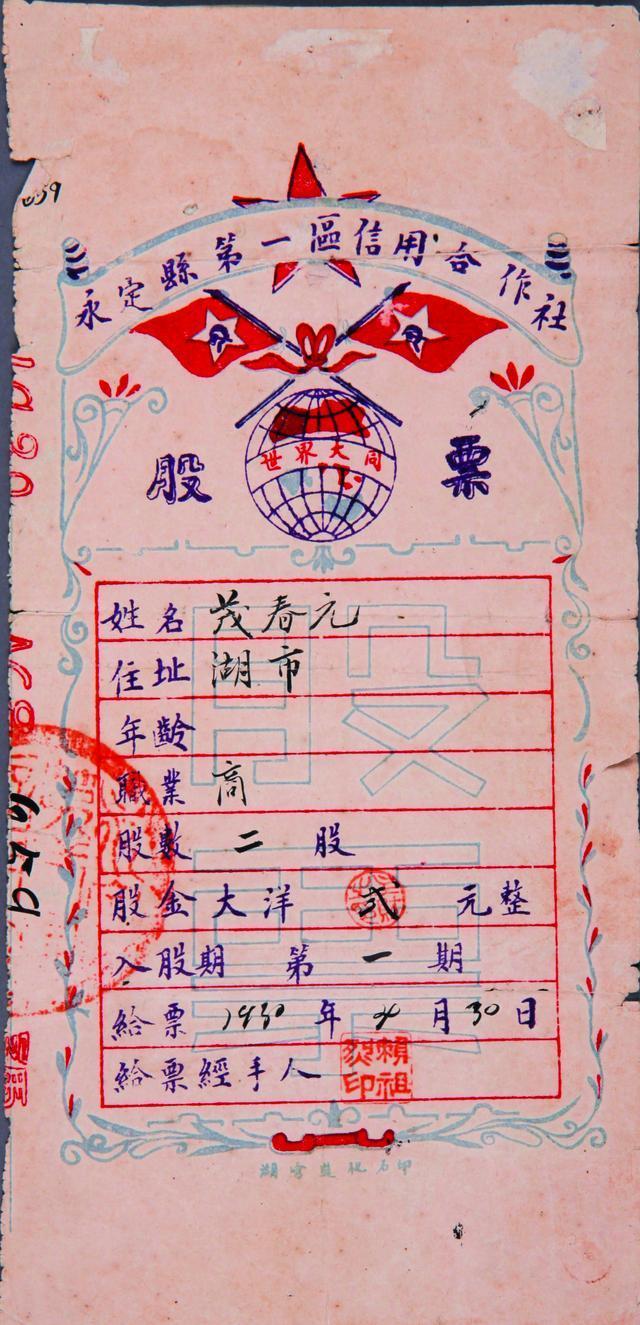 059
永定縣第一區信用合作社
股票
世界大同
姓名 茂春元
住址 湖市
年齡
職業 商
股數 二 股
股金大洋 弍 元整
入股期 第一期
給票 1930年4月30日
給票經手人
059